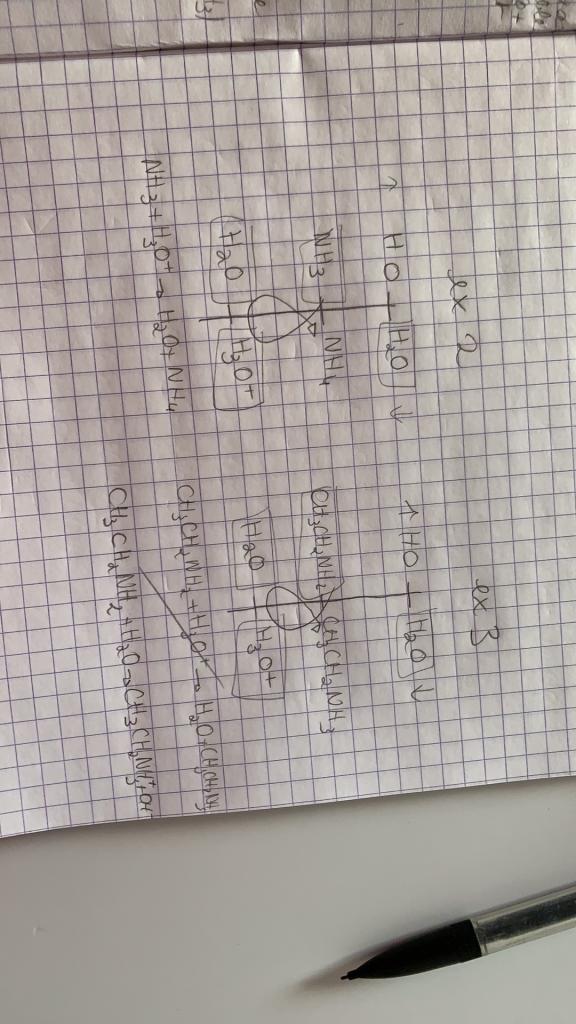 ex 2
↑ HO | H2O ↓
NH3 | NH4
H2O | H3O+
NH3 + H3O+ → H2O + NH4
ex 3
↑ HO | H2O ↓
CH3CH2NH2 | CH3CH2NH3
H2O | H3O+
CH3CH2NH2 + H3O+ → H2O + CH3CH2NH3
CH3CH2NH2 + H2O → CH3CH2NH3+ + OH-